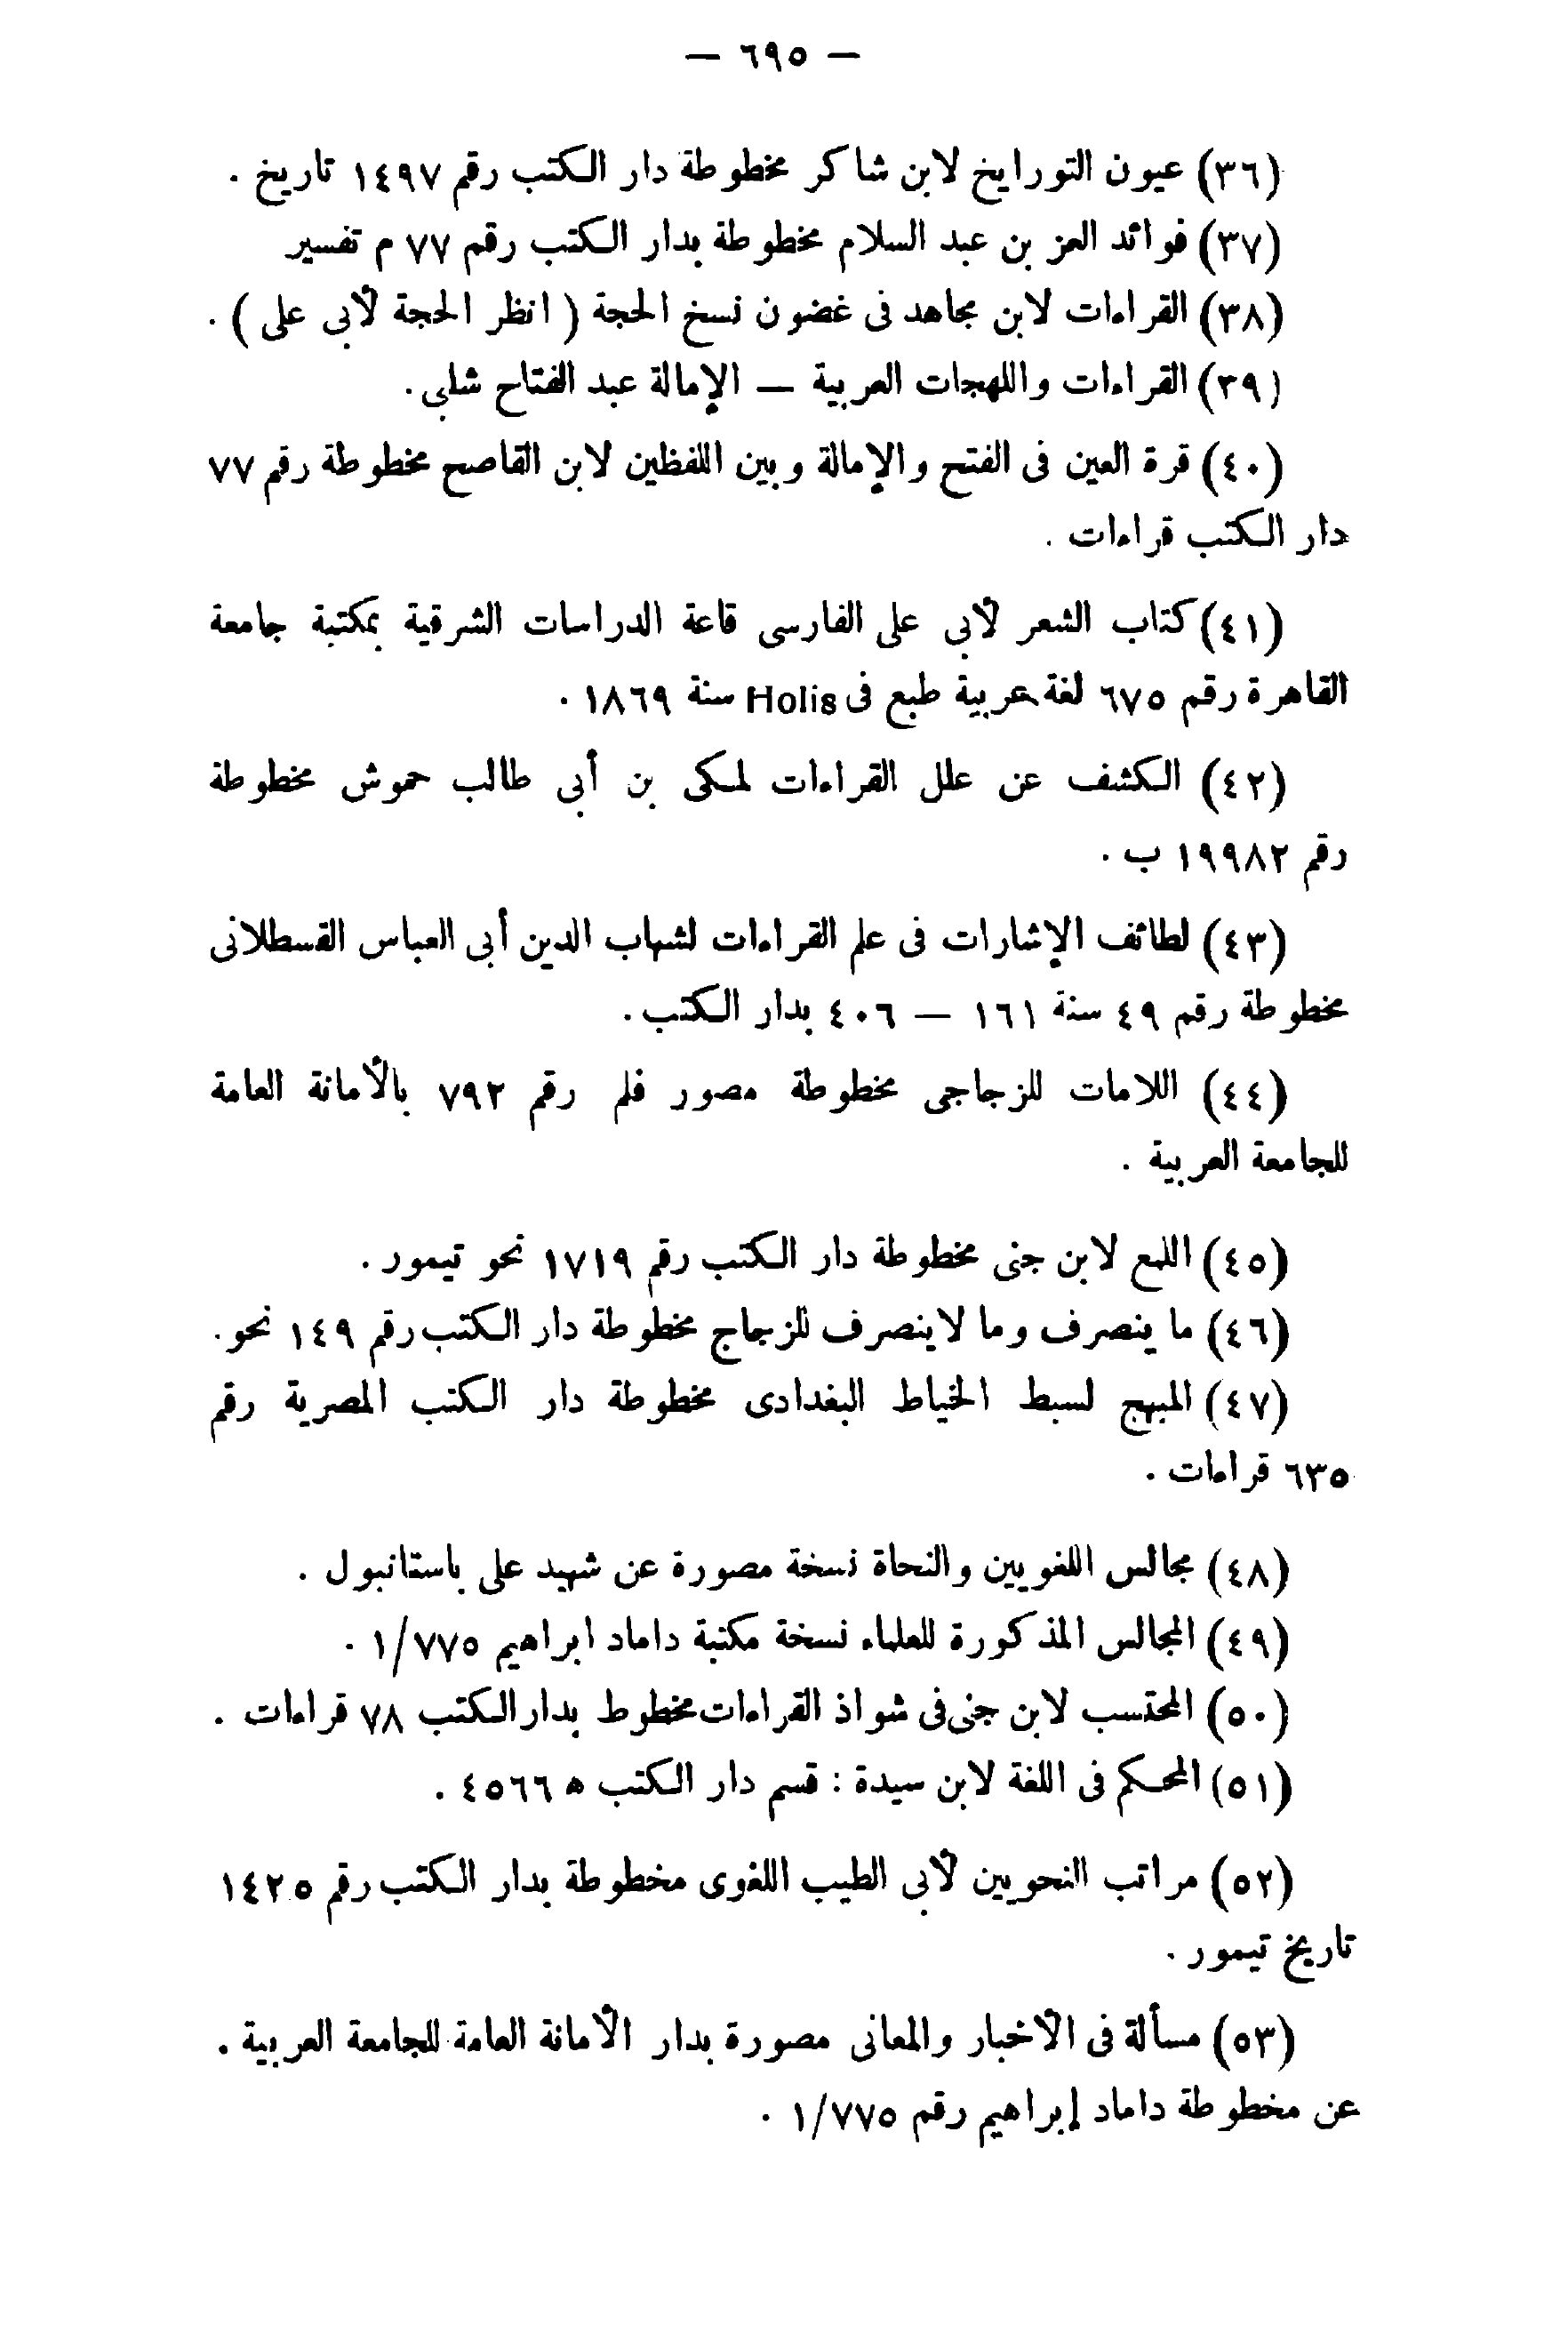 — ٦٩٥ —
(٣٦) عيون التورايخ لابن شاكر مخطوطة دار الكتب رقم ١٤٩٧ تاريخ .
(٣٧) فوائد العز بن عبد السلام مخطوطة بدار الكتب رقم ٧٧ م تفسير
(٣٨) القراءات لابن مجاهد فى غضون نسخ الحجة ( انظر الحجة لأبى على ) .
(٣٩) القراءات واللهجات العربية — الإمالة عبد الفتاح شلبى .
(٤٠) قرة العين فى الفتح والإمالة وبين اللفظين لابن القاصح مخطوطة رقم ٧٧
دار الكتب قراءات .
(٤١) كتاب الشعر لأبى على الفارسى قاعة الدراسات الشرقية بمكتبة جامعة
القاهرة رقم ٦٧٥ لغة عربية طبع فى Holis سنة ١٨٦٩ .
(٤٢) الكشف عن علل القراءات لمكى بن أبى طالب حموش مخطوطة
رقم ١٩٩٨٢ ب .
(٤٣) لطائف الإشارات فى علم القراءات لشهاب الدين أبى العباس القسطلانى
مخطوطة رقم ٤٩ سنة ١٦١ — ٤٠٦ بدار الكتب .
(٤٤) اللامات للزجاجى مخطوطة مصور فلم رقم ٧٩٢ بالأمانة العامة
للجامعة العربية .
(٤٥) اللمع لابن جنى مخطوطة دار الكتب رقم ١٧١٩ نحو تيمور .
(٤٦) ما ينصرف وما لاينصرف للزجاج مخطوطة دار الكتب رقم ١٤٩ نحو .
(٤٧) المبهج لسبط الخياط البغدادى مخطوطة دار الكتب المصرية رقم
٦٣٥ قراءات .
(٤٨) مجالس اللغويين والنحاة نسخة مصورة عن شهيد على باستانبول .
(٤٩) المجالس المذكورة للعلماء نسخة مكتبة داماد ابراهيم ١/٧٧٥ .
(٥٠) المحتسب لابن جنى فى شواذ القراءات مخطوط بدار الكتب ٧٨ قراءات .
(٥١) المحكم فى اللغة لابن سيدة : قسم دار الكتب ه ٤٥٦٦ .
(٥٢) مراتب النحويين لأبى الطيب اللغوى مخطوطة بدار الكتب رقم ١٤٢٥
تاريخ تيمور .
(٥٣) مسألة فى الأخبار والمعانى مصورة بدار الأمانة العامة للجامعة العربية .
عن مخطوطة داماد إبراهيم رقم ١/٧٧٥ .